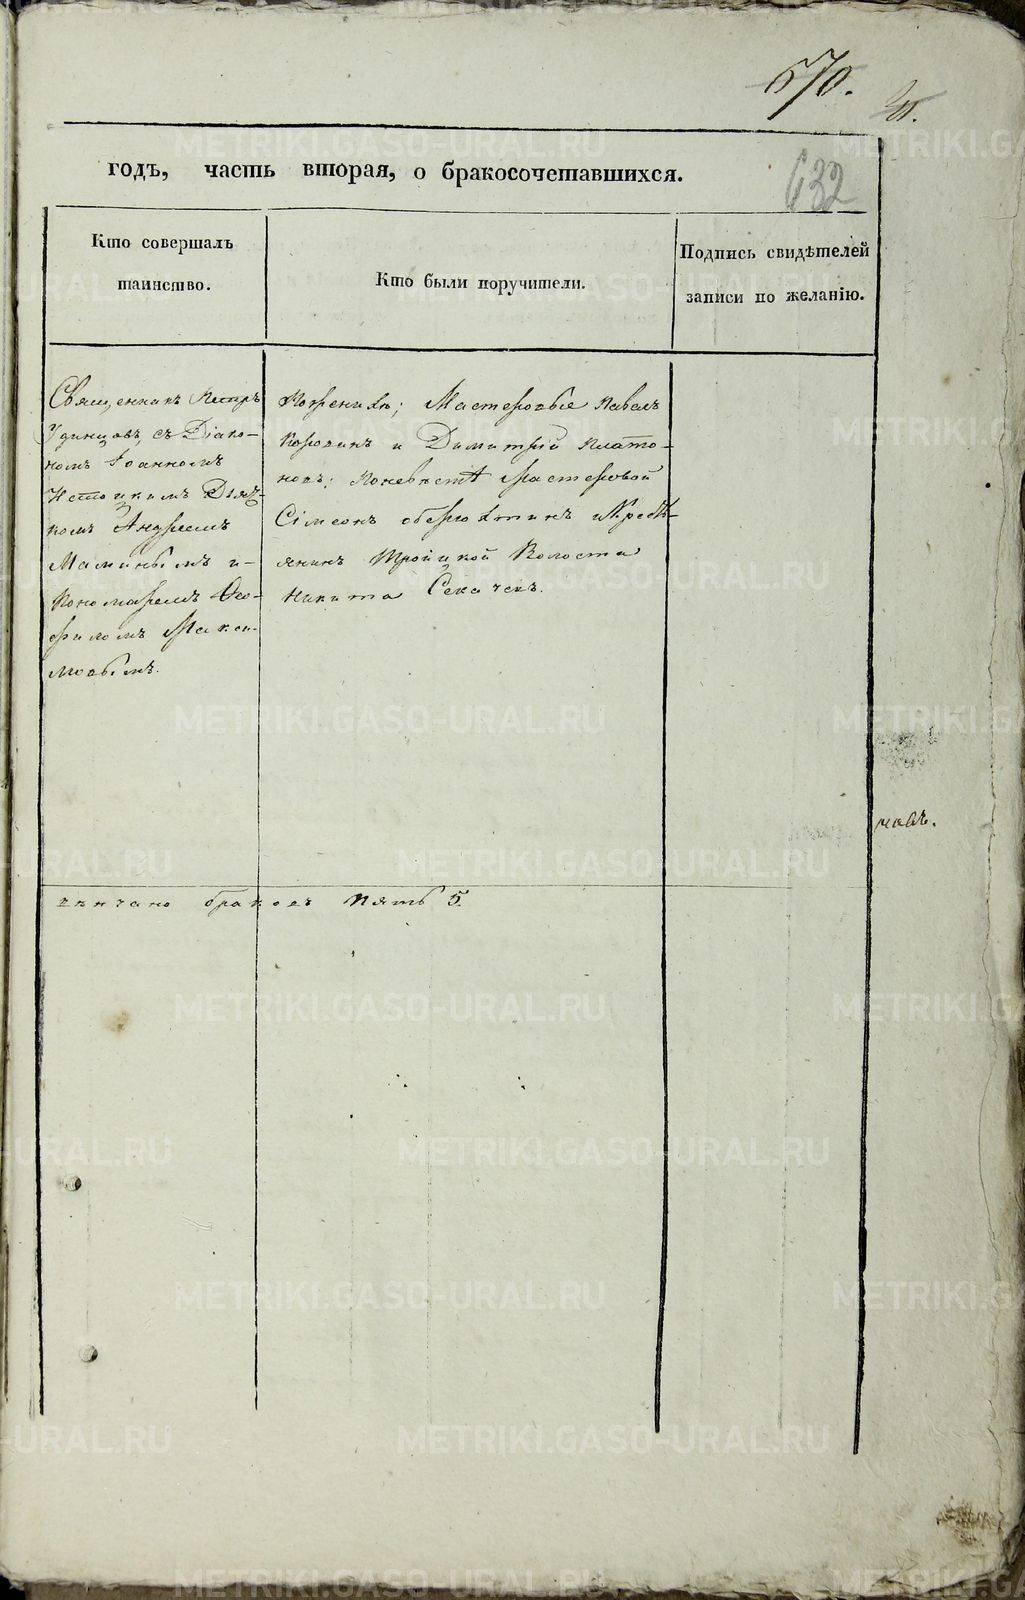 670.
632
годъ, часть вторая, о бракосочетавшихся.
Кто совершалъ
таинство.
Кто были поручители.
Подпись свидѣтелей
записи по желанію.
Священникъ Петръ
Удинцовъ, съ Діако-
номъ Іоанномъ
Дьяч-
комъ Андреемъ
Маминымъ и
Пономаремъ Ѳео-
филомъ Макси-
мовымъ.
По женихѣ; Мастеровые Павелъ
и Димитрій Плато-
новъ; по невѣстѣ Мастеровой
Сімеонъ и Кресть-
янинъ Троицкой Волости
Никита Секачевъ.
вѣнчано браковъ пять 5.
METRIKI.GASO-URAL.RU